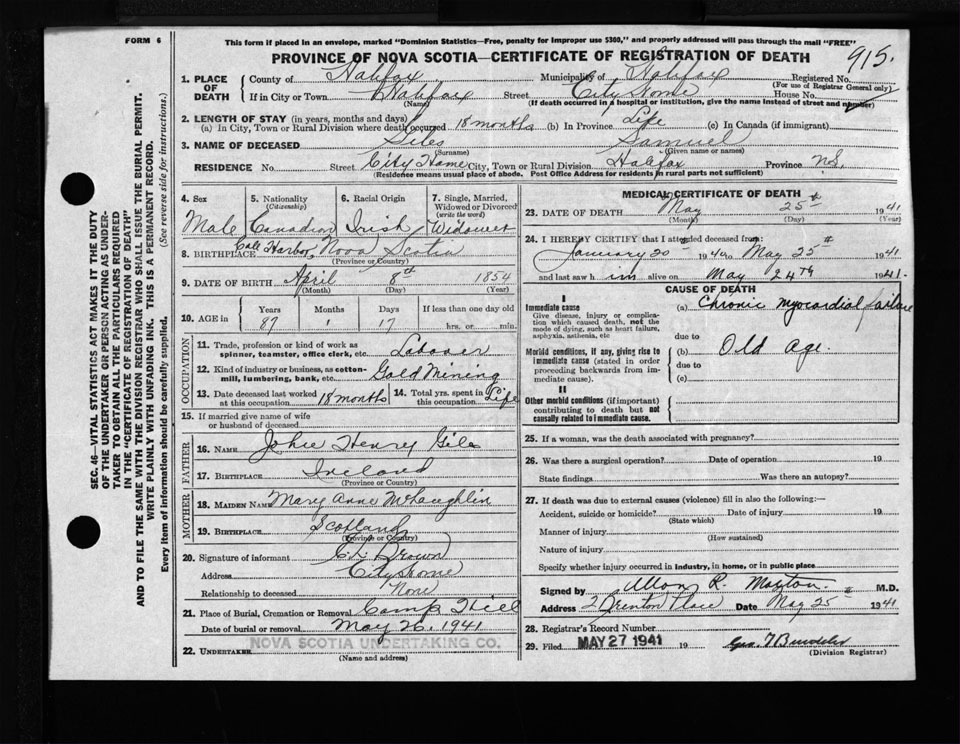 FORM 6
This form if placed in an envelope, marked "Dominion Statistics—Free, penalty for improper use $300," and properly addressed will pass through the mail "FREE"
PROVINCE OF NOVA SCOTIA—CERTIFICATE OF REGISTRATION OF DEATH 915.
1. PLACE OF DEATH
County of Halifax Municipality of Halifax Registered No.
(For use of Registrar General only)
If in City or Town Halifax Street City Home House No.
(Name) (If death occurred in a hospital or institution, give the name instead of street and number)
2. LENGTH OF STAY (in years, months and days)
(a) In City, Town or Rural Division where death occurred 18 months (b) In Province Life (c) In Canada (if immigrant)
3. NAME OF DECEASED Giles Samuel
(Surname) (Given name or names)
RESIDENCE No. Street City Home City, Town or Rural Division Halifax Province N.S.
(Residence means usual place of abode. Post Office Address for residents in rural parts not sufficient)
SEC. 46—VITAL STATISTICS ACT MAKES IT THE DUTY
OF THE UNDERTAKER OR PERSON ACTING AS UNDER-
TAKER TO OBTAIN ALL THE PARTICULARS REQUIRED
IN THE "CERTIFICATE OF REGISTRATION OF DEATH"
AND TO FILE THE SAME WITH THE DIVISION REGISTRAR WHO SHALL ISSUE THE BURIAL PERMIT.
WRITE PLAINLY WITH UNFADING INK. THIS IS A PERMANENT RECORD.
Every item of information should be carefully supplied. (See reverse side for instructions.)
4. Sex Male
5. Nationality (Citizenship) Canadian
6. Racial Origin Irish
7. Single, Married, Widowed or Divorced (write the word) Widower
8. BIRTHPLACE Cole Harbor, Nova Scotia
(Province or Country)
9. DATE OF BIRTH April 8th 1854
(Month) (Day) (Year)
10. AGE in Years Months Days If less than one day old
87 1 17 hrs. or min.
OCCUPATION
11. Trade, profession or kind of work as
spinner, teamster, office clerk, etc. Laborer
12. Kind of industry or business, as cotton-
mill, lumbering, bank, etc. Gold Mining
13. Date deceased last worked at this occupation 18 months
14. Total yrs. spent in this occupation Life
15. If married give name of wife
or husband of deceased
FATHER
16. NAME John Henry Giles
17. BIRTHPLACE Ireland
(Province or Country)
MOTHER
18. MAIDEN NAME Mary Anne McLaughlin
19. BIRTHPLACE Scotland
(Province or Country)
20. Signature of informant Brown
Address City Home
Relationship to deceased None
21. Place of Burial, Cremation or Removal Camp Hill
Date of burial or removal May 26, 1941
22. UNDERTAKER NOVA SCOTIA UNDERTAKING CO.
(Name and address)
MEDICAL CERTIFICATE OF DEATH
23. DATE OF DEATH May 25th 1941
(Month) (Day) (Year)
24. I HEREBY CERTIFY that I attended deceased from:
January 20 1940 to May 25th 1941
and last saw him alive on May 24th 1941.
CAUSE OF DEATH
I
Immediate cause
Give disease, injury or complica-
tion which caused death, not the
mode of dying, such as heart failure,
asphyxia, asthenia, etc
(a) Chronic myocardial failure
due to
Morbid conditions, if any, giving rise to
immediate cause (stated in order
proceeding backwards from im-
mediate cause).
(b) Old Age.
due to
(c)
II
Other morbid conditions (if important)
contributing to death but not
causally related to immediate cause.
25. If a woman, was the death associated with pregnancy?
26. Was there a surgical operation? Date of operation 19
State findings Was there an autopsy?
27. If death was due to external causes (violence) fill in also the following:—
Accident, suicide or homicide? Date of injury 19
(State which)
Manner of injury
(How sustained)
Nature of injury
Specify whether injury occurred in industry, in home, or in public place
Signed by R. M.D.
Address Place Date May 25th 1941
28. Registrar's Record Number
29. Filed MAY 27 1941 19 Geo.
(Division Registrar)